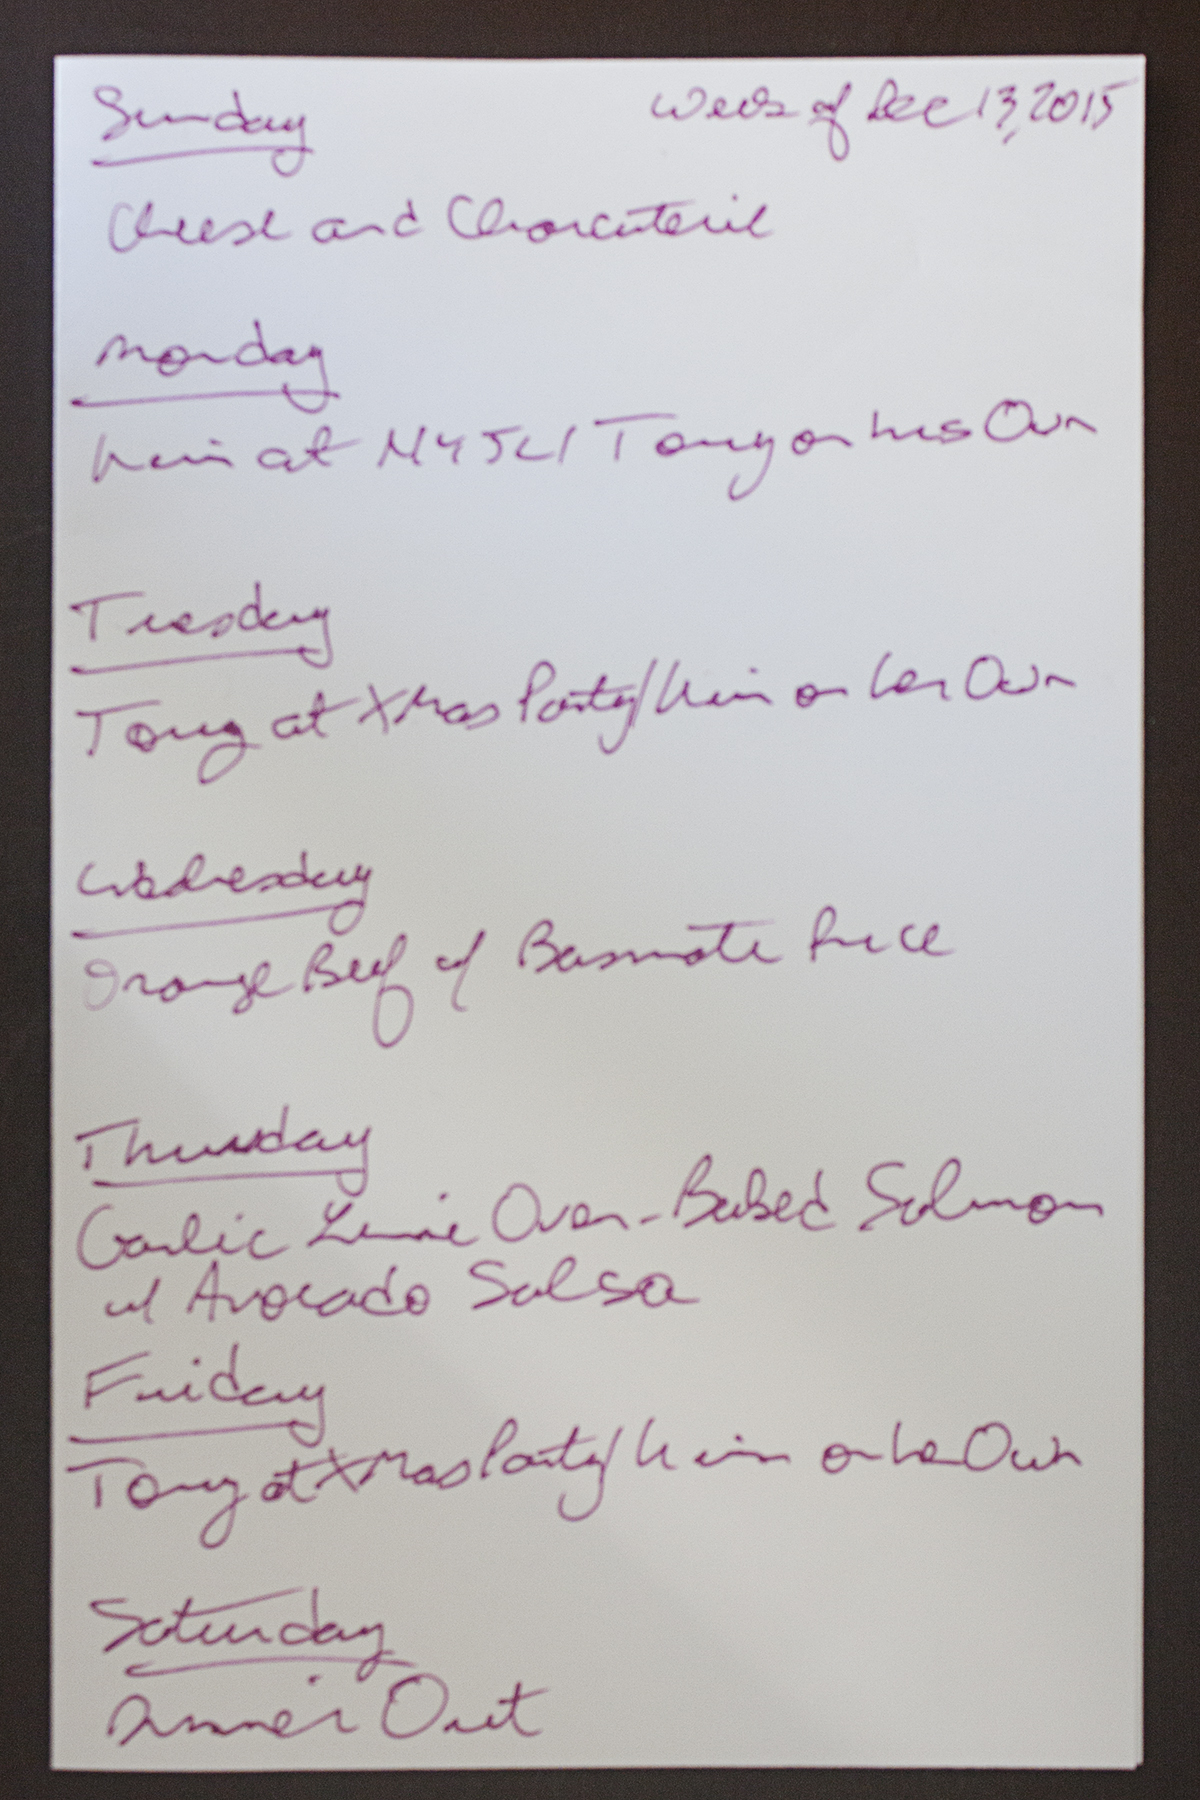 Sunday Week of Dec 13, 2015
Cheese and Charcuterie
Monday
Kim at NYJL / Tony on his Own
Tuesday
Tony at XMas Party / Kim on her Own
Wednesday
Orange Beef w/ Basmati Rice
Thursday
Garlic Lime Oven-Baked Salmon
w/ Avocado Salsa
Friday
Tony at XMas Party / Kim on her Own
Saturday
Dinner Out